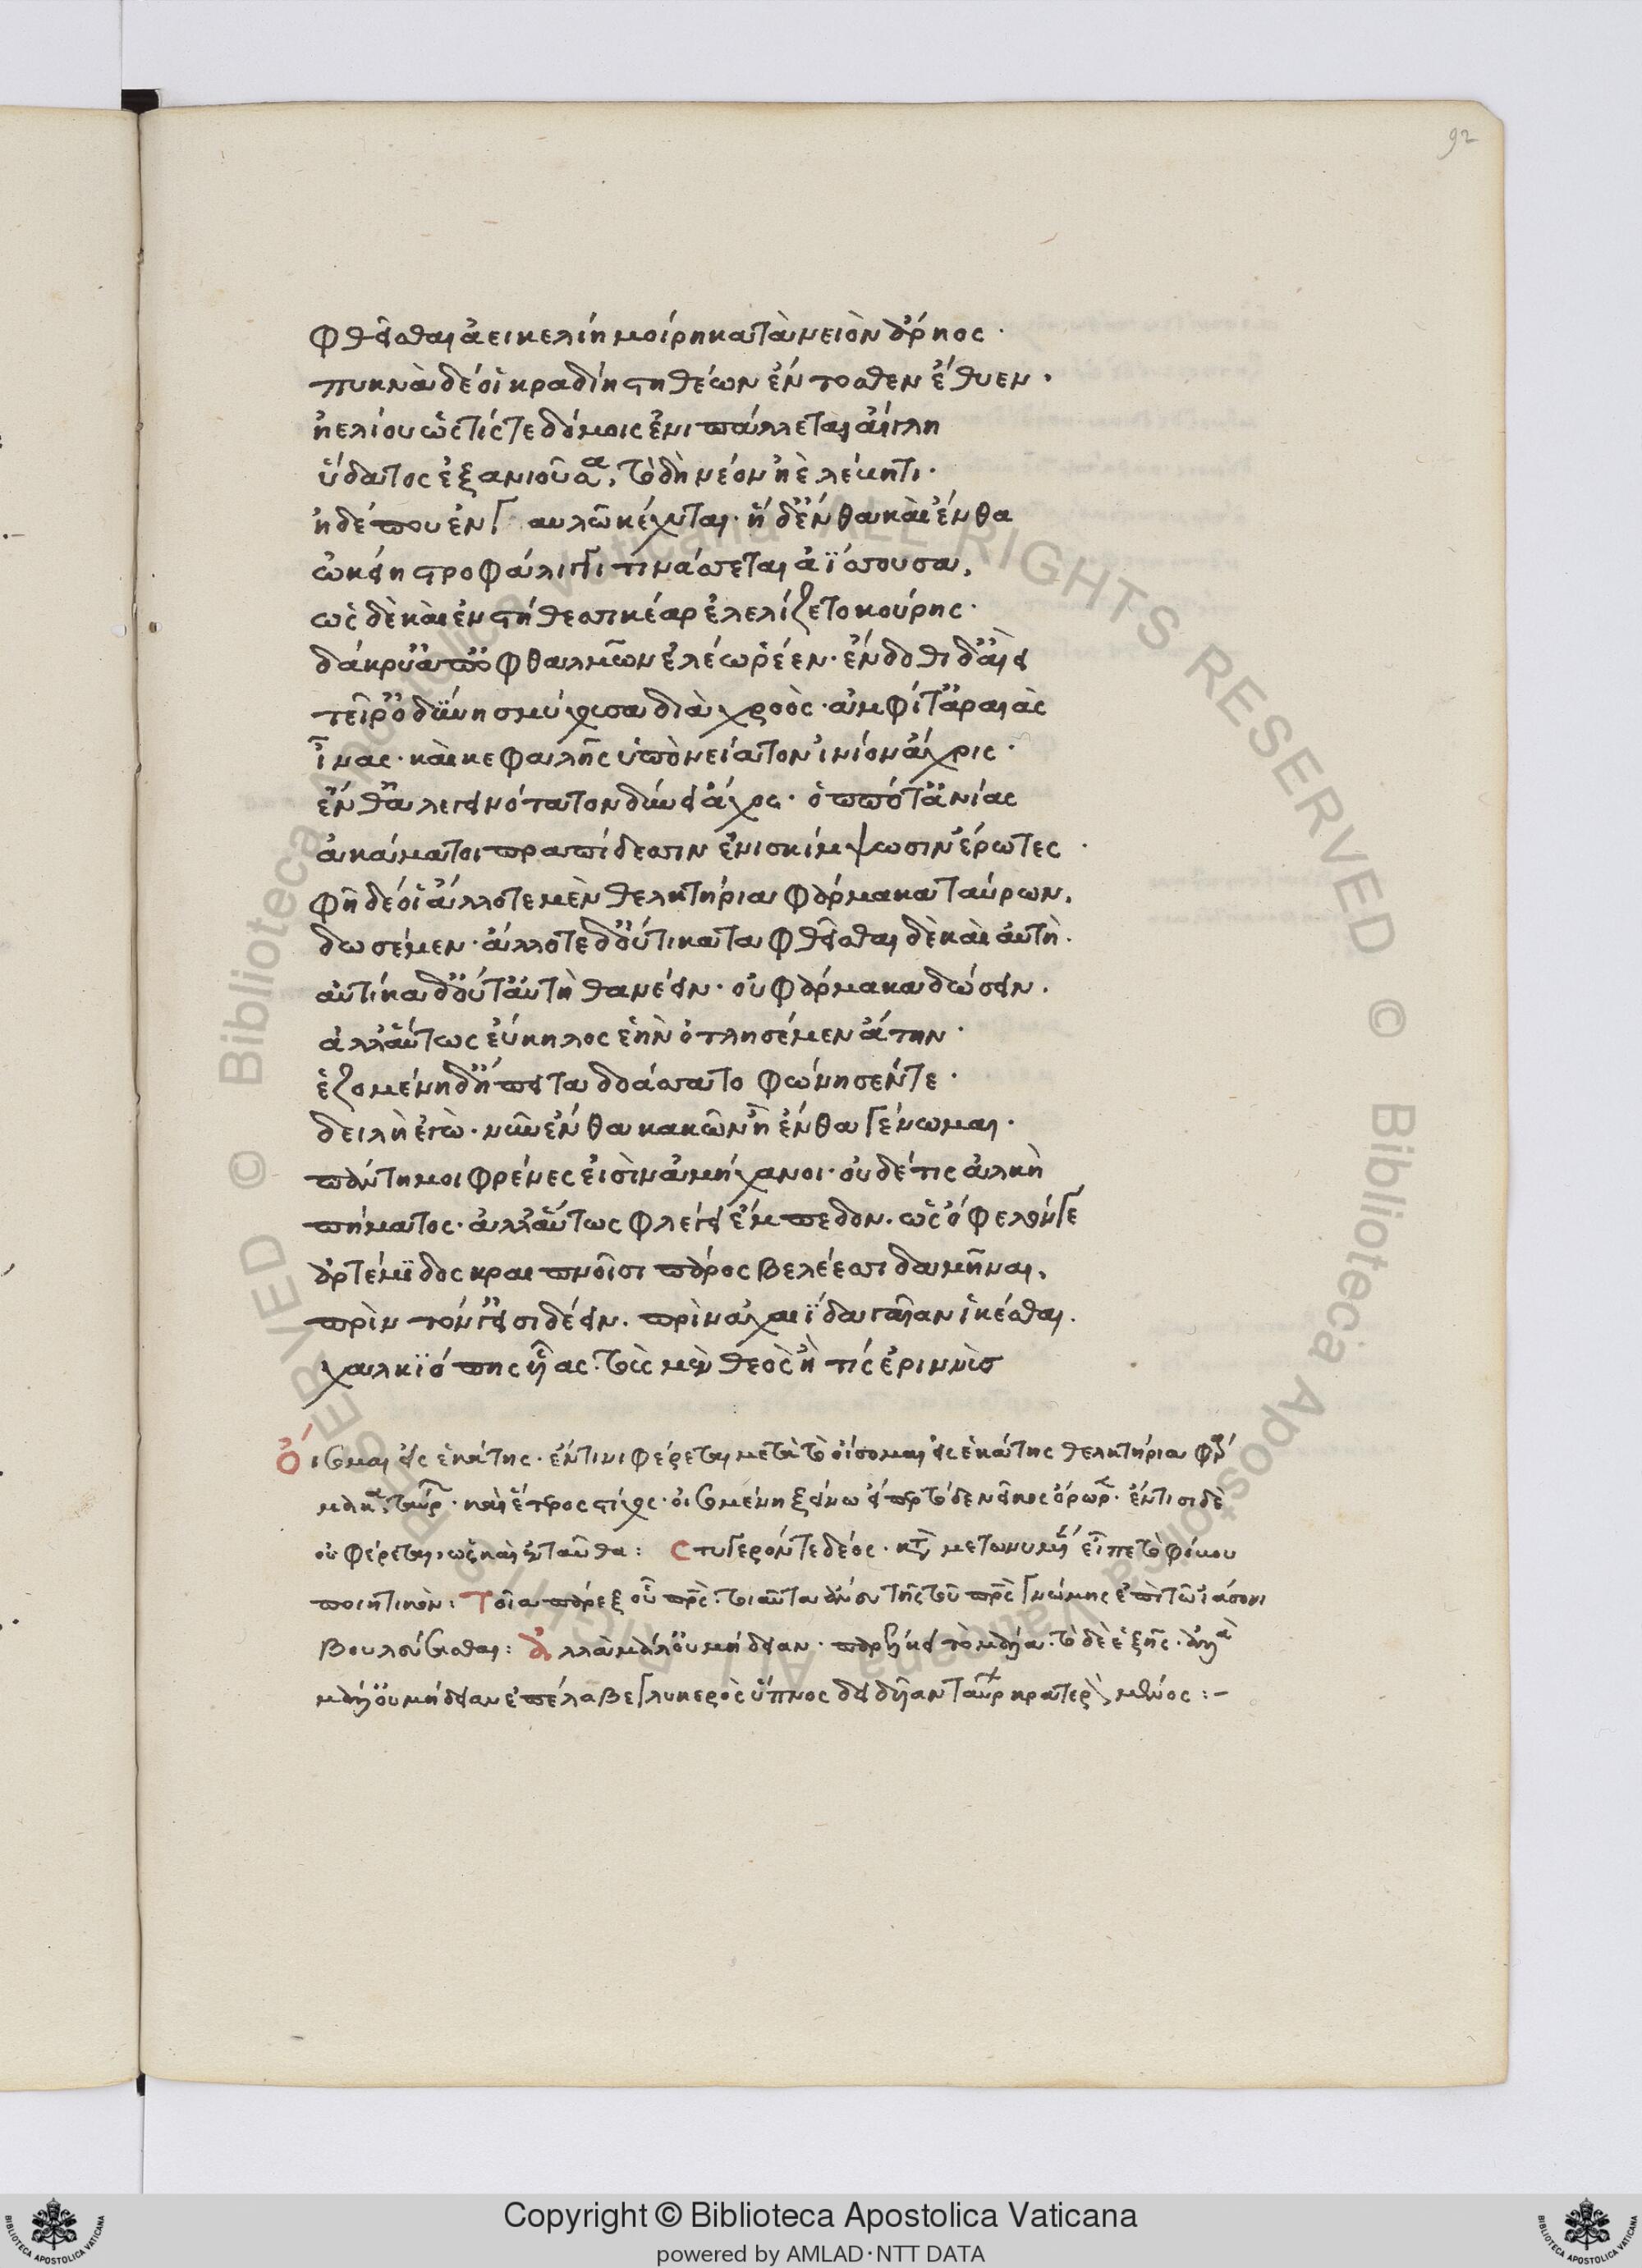 φθεῖσθαι ἀεικελίη μοίρη κατὰ νειὸν ἄρηος·
πυκνὰ δέ οἱ κραδίη στηθέων ἔντοσθεν ἔθυεν·
ἠελίου ὥς τίς τε δόμοις ἐνιπάλλεται αἴγλη
ὕδατος ἐξανιοῦσα, τὸ δὴ νέον ἠὲ λέβητι·
ἠδέ που ἐν γαυλῶ κέχυται· ἡ δ' ἔνθα καὶ ἔνθα
ὠκείη στροφάλιγγι τινάσσεται ἀΐσσουσα,
ὣς δὲ καὶ ἐν στήθεσσι κέαρ ἐλελίζετο κούρης·
δάκρυ δ' ἀπ' ὀφθαλμῶν ἐλέω ῥέεν· ἔνδοθι δ' αἰεὶ
τεῖρ' ὀδύνη σμύχουσα διὰ χροὸς· ἀμφί τ' ἀραιὰς
ἶνας· καὶ κεφαλῆς ὑπὸ νείατον ἰνίον ἄχρις·
ἔνθ' ἀλεγεινότατον δύνει ἄχος· ὁππότ' ἀνίας
ἀκάματοι πραπίδεσσιν ἐνισκίμψωσιν ἔρωτες·
φῆ δέ οἱ ἄλλοτε μὲν θελκτήρια φάρμακα ταύρων,
δωσέμεν· ἄλλοτε δ' οὔτι καταφθεῖσθαι δὲ καὶ αὐτὴ.
αὐτίκα δ' οὔτ' αὐτὴ θανέειν· οὐ φάρμακα δώσειν.
ἀλλ' αὕτως εὔκηλος ἑὴν ὀτλησέμεν ἄτην·
ἑζομένη δ' ἤπειτα δοάσσατο φώνησέν τε·
δειλὴ ἐγὼ· νῦν ἔνθα κακῶν ἢ ἔνθα γένωμαι·
πάντη μοι φρένες εἰσὶν ἀμήχανοι· οὐδέ τις ἀλκὴ
πήματος· ἀλλ' αὕτως φλέγει ἔμπεδον· ὡς ὄφελόν γε
ἀρτέμϊδος κραιπνοῖσι πάρος βελέεσσι δαμῆναι,
πρὶν τόν γ' εἰσιδέειν· πρὶν ἀχαιΐδα γαῖαν ἱκέσθαι.
χαλκϊόπης υἷας· τοὺς μὲν θεὸς ἢ τίς ἐριννὺς
Οἴσομαι εἰς ἑκάτης· ἔν τινι φέρεται μετὰ τὸ οἴσομαι εἰς ἑκάτης θελκτήρια φάρ
μακα ταύρ· καὶ ἕτερος στίχος· οἰσομένη ξείνω ὑπὲρ οὗ τόδε νεῖκος ὄρωρε· ἔν τισι δὲ
οὐ φέρεται, ὡς καὶ ἐνταῦθα: Στυγερόν τε δέος· κτ μετωνυμ εἶπε τὸ φόβου
ποιητικὸν: Τοῖα παρὲξ οὗ πρς: τοιαῦτα ἄνευ τῆς τοῦ πρς γνώμης ἐπὶ τῶ ἰάσονι
βουλεύσασθαι: Ἀλλὰ μάλ' οὐ μήδειαν· παρέλκει τὸ μάλα· τὸ δὲ ἑξῆς· ἀλλὰ
μάλ' οὐ μήδειαν ἐπέλαβε γλυκερὸς ὕπνος δειδυῖαν ταύρ κρατερὸν μένος:–
92
Copyright © Biblioteca Apostolica Vaticana
powered by AMLAD·NTT DATA